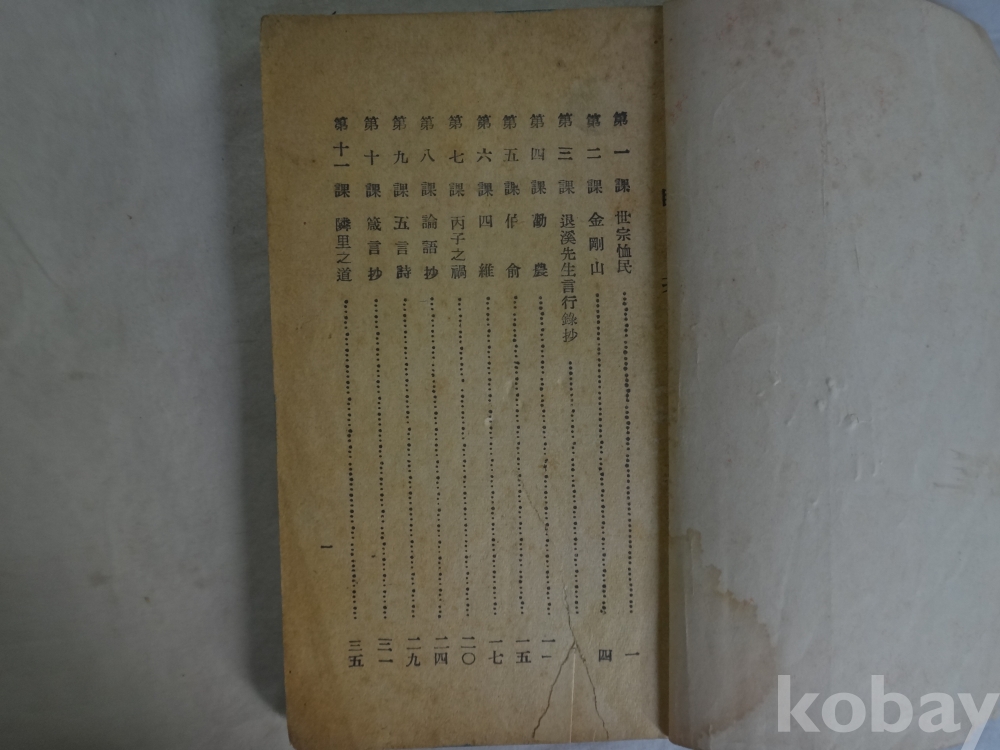 第一課 世宗恤民 一
第二課 金剛山 四
第三課 退溪先生言行錄抄
第四課 勸農 一一
第五課 伯俞 一五
第六課 四維 一七
第七課 丙子之禍 二〇
第八課 論語抄 二四
第九課 五言詩 二九
第十課 箴言抄 三一
第十一課 隣里之道 三五
一
kobay